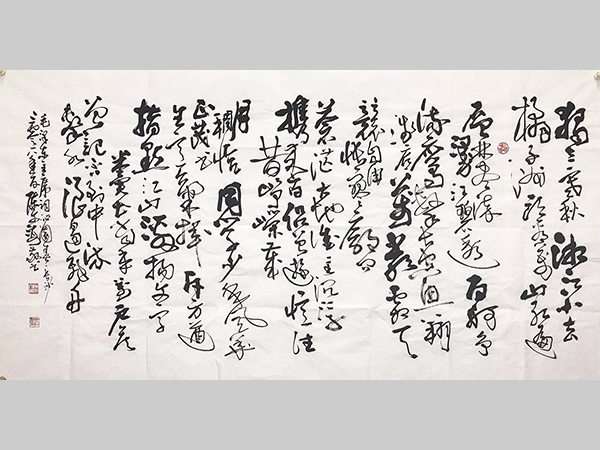 独立寒秋湘江北去
橘子洲头看万山红遍
层林尽染
漫江碧透百舸争
流鹰击长空鱼翔
浅底万类霜天
竞自由
怅寥廓问
苍茫大地谁主沉浮
携来百侣曾游忆往
昔峥嵘岁
月稠恰同学少年风华
正茂书生意气挥斥方遒
指点江山激扬文字
粪土当年万户侯
曾记否到中流
击水浪遏飞舟
毛泽东主席词沁园春长沙
二零一八年